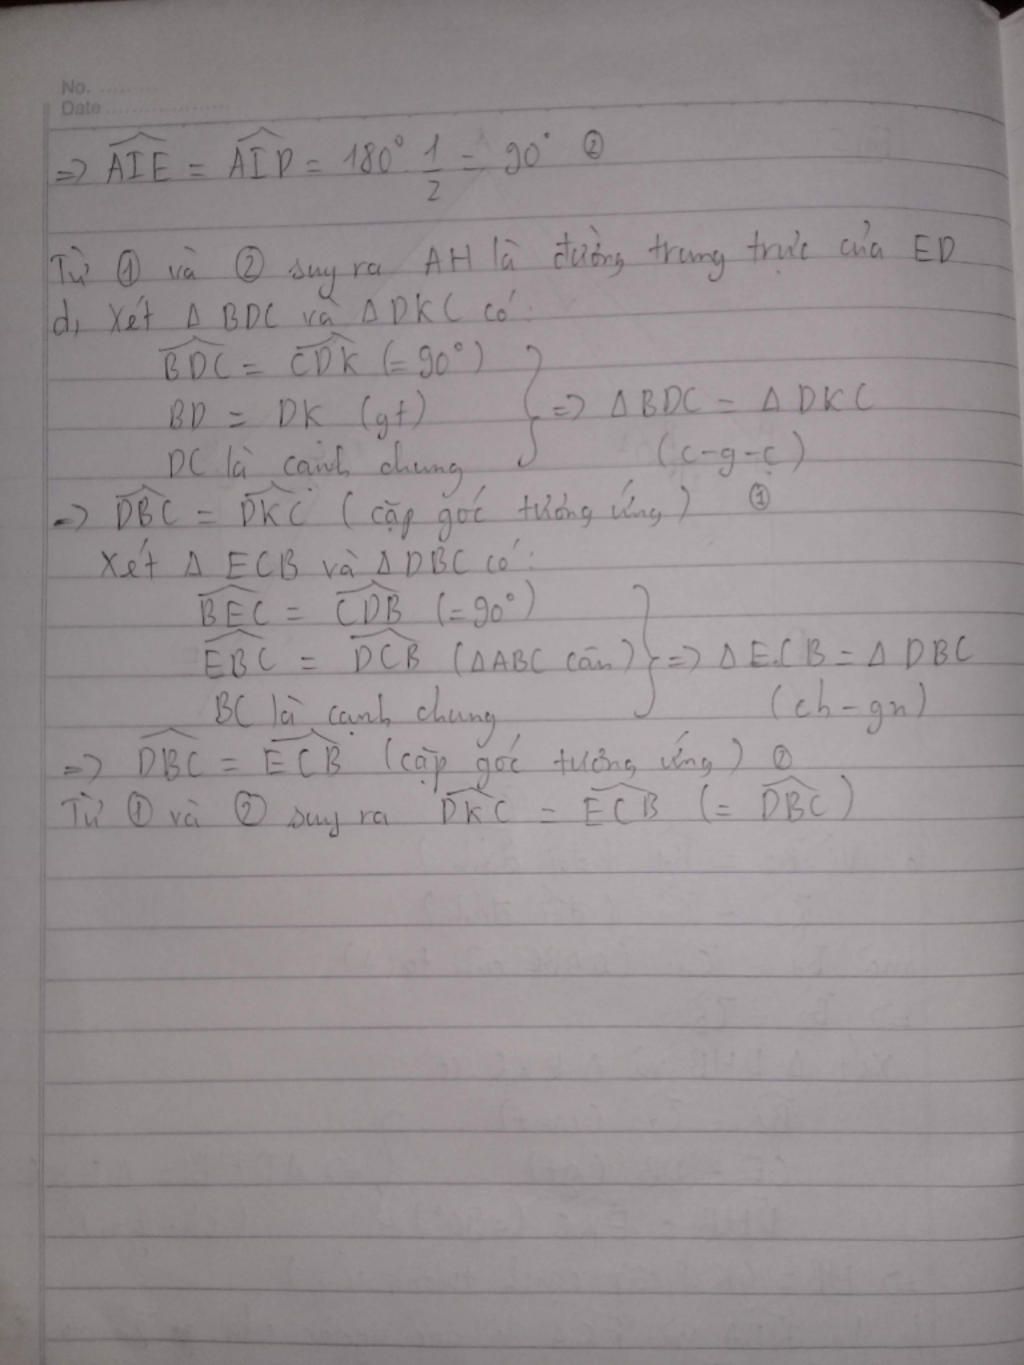 No. ..........
Date ....................
=> \widehat{AIE} = \widehat{AID} = 180° . 1/2 = 90° ②
Từ ① và ② suy ra AH là đường trung trực của ED
d, Xét Δ BDC và Δ DKC có:
\widehat{BDC} = \widehat{CDK} (= 90°)
BD = DK (gt) } => Δ BDC = Δ DKC
DC là cạnh chung (c-g-c)
=> \widehat{DBC} = \widehat{DKC} (cặp góc tương ứng) ①
Xét Δ ECB và Δ DBC có:
\widehat{BEC} = \widehat{CDB} (= 90°)
\widehat{EBC} = \widehat{DCB} (ΔABC cân) } => Δ ECB = Δ DBC
BC là cạnh chung (ch - gn)
=> \widehat{DBC} = \widehat{ECB} (cặp góc tương ứng) ②
Từ ① và ② suy ra \widehat{DKC} = \widehat{ECB} (= \widehat{DBC})